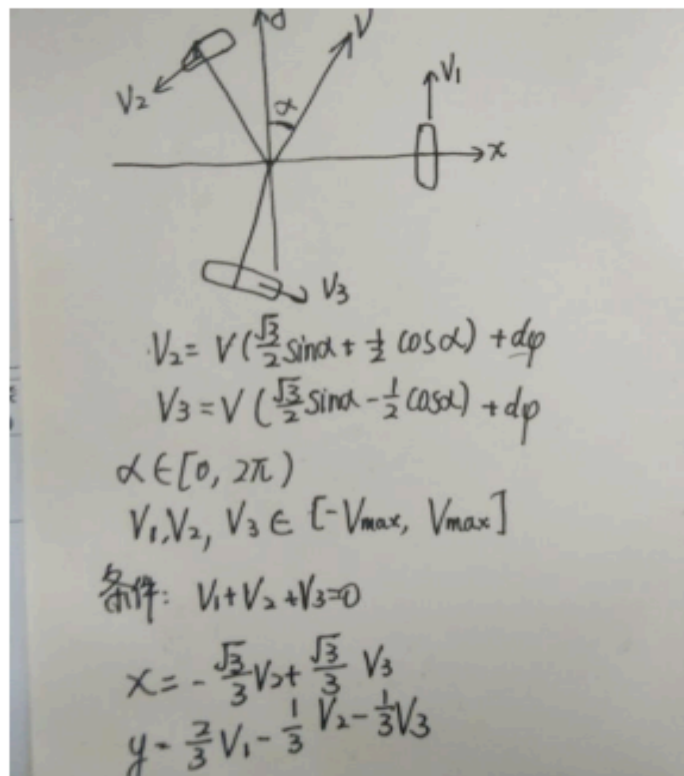 V
V₂
α
V₁
x
V₃
V₂ = V(√3/2 sinα + 1/2 cosα) + dφ
V₃ = V(√3/2 sinα - 1/2 cosα) + dφ
α ∈ [0, 2π)
V₁, V₂, V₃ ∈ [-Vmax, Vmax]
条件: V₁+V₂+V₃=0
x = -√3/3 V₂ + √3/3 V₃
y = 2/3 V₁ - 1/3 V₂ - 1/3 V₃